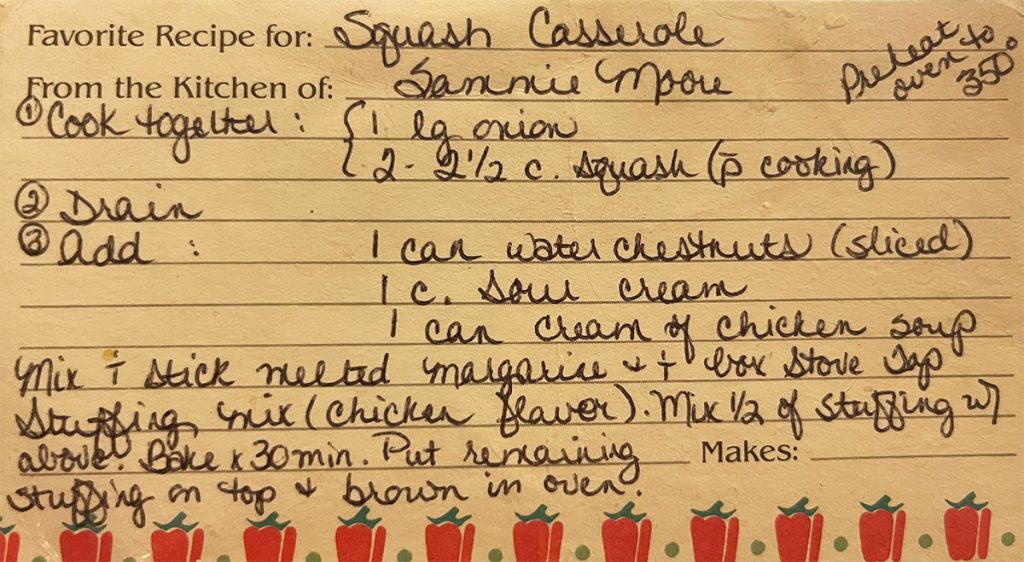 Favorite Recipe for: Squash Casserole
From the Kitchen of: Sammie Moore
Preheat
oven to
350°
① Cook together: { 1 lg onion
2 - 2 1/2 c. squash (p̄ cooking)
② Drain
③ Add : 1 can water chestnuts (sliced)
1 c. sour cream
1 can cream of chicken soup
Mix i̇ stick melted margarine & i̇ box Stove Top
Stuffing mix (chicken flavor). Mix 1/2 of stuffing w/
above. Bake x 30 min. Put remaining
Makes:
stuffing on top & brown in oven.